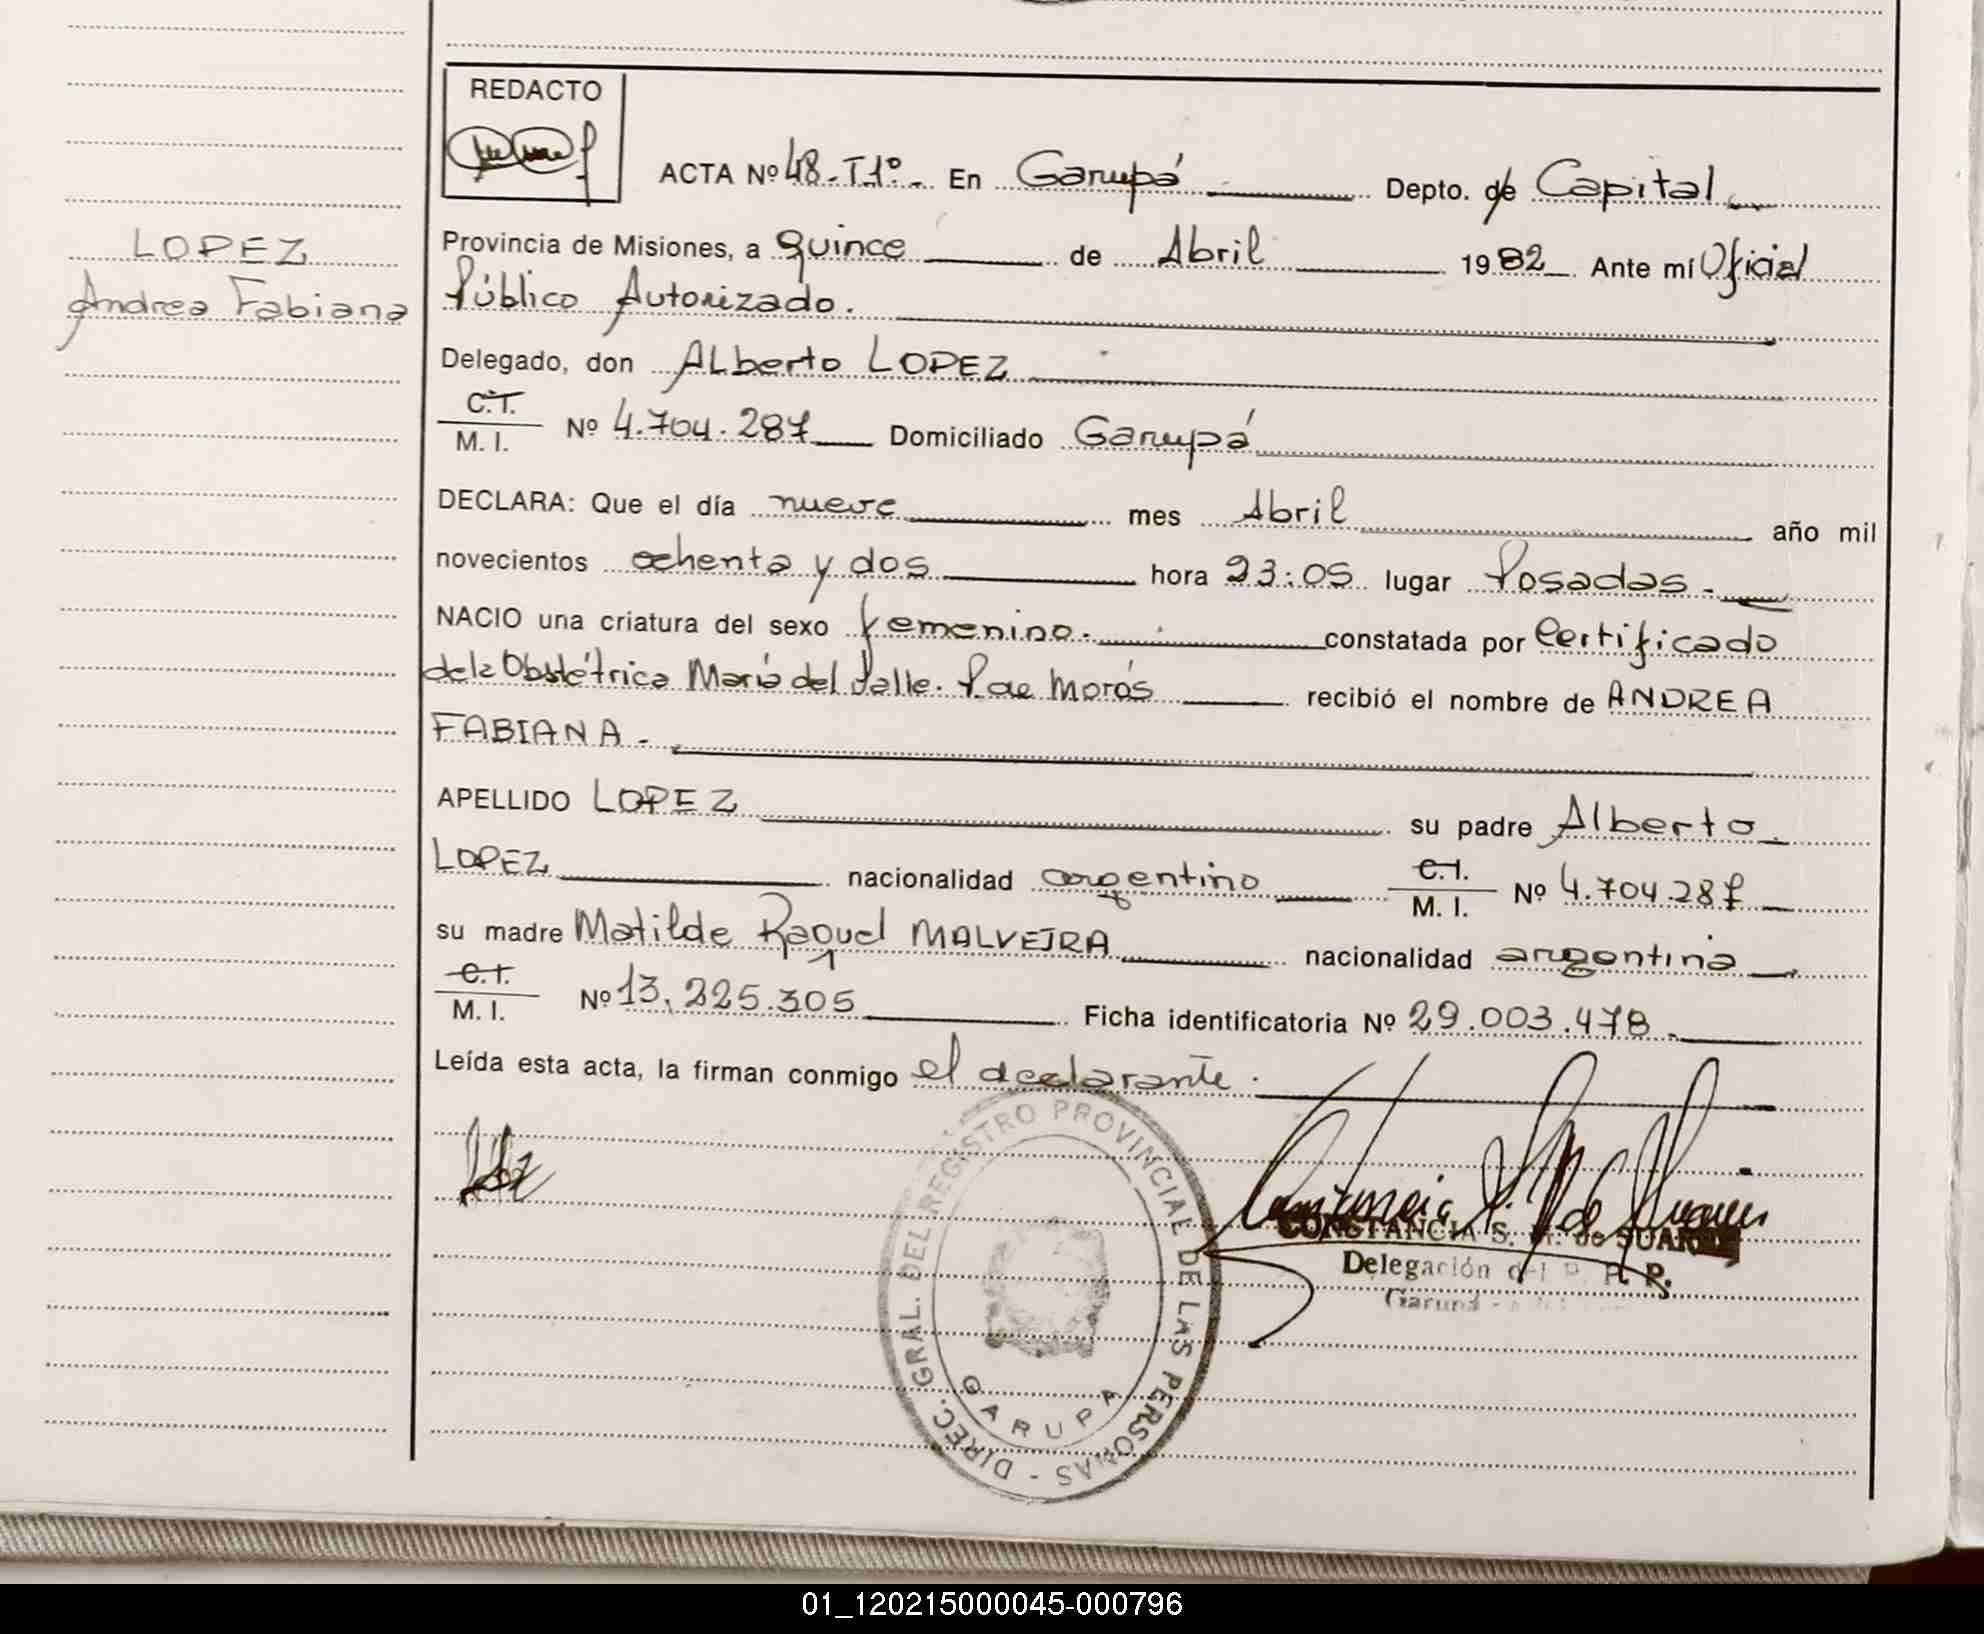 REDACTO
ACTA Nº 48-T1º- En Garupá Depto. de Capital
LOPEZ
Andrea Fabiana
Provincia de Misiones, a quince de Abril 1982 Ante mí Oficial
Público Autorizado.
Delegado, don ALberto LOPEZ
C.T.
M. I. Nº 4.704.287 Domiciliado Garupá
DECLARA: Que el día nueve mes Abril año mil
novecientos ochenta y dos hora 23:05 lugar Posadas -
NACIO una criatura del sexo femenino. constatada por Certificado
de la Obstétrica María del Valle. P. de Morás recibió el nombre de ANDREA
FABIANA -
APELLIDO LOPEZ su padre Alberto
LOPEZ nacionalidad argentino C.I. M. I. Nº 4.704.287
su madre Matilde Raquel MALVEIRA nacionalidad argentina
C.I.
M. I. Nº 13.225.305 Ficha identificatoria Nº 29.003.478.
Leída esta acta, la firman conmigo el declarante.
DIREC. GRAL. DEL REGISTRO PROVINCIAL DE LAS PERSONAS -
GARUPA
CONSTANCIA S. de SUAREZ
Delegación del R. P. P.
Garupá -
01_120215000045-000796